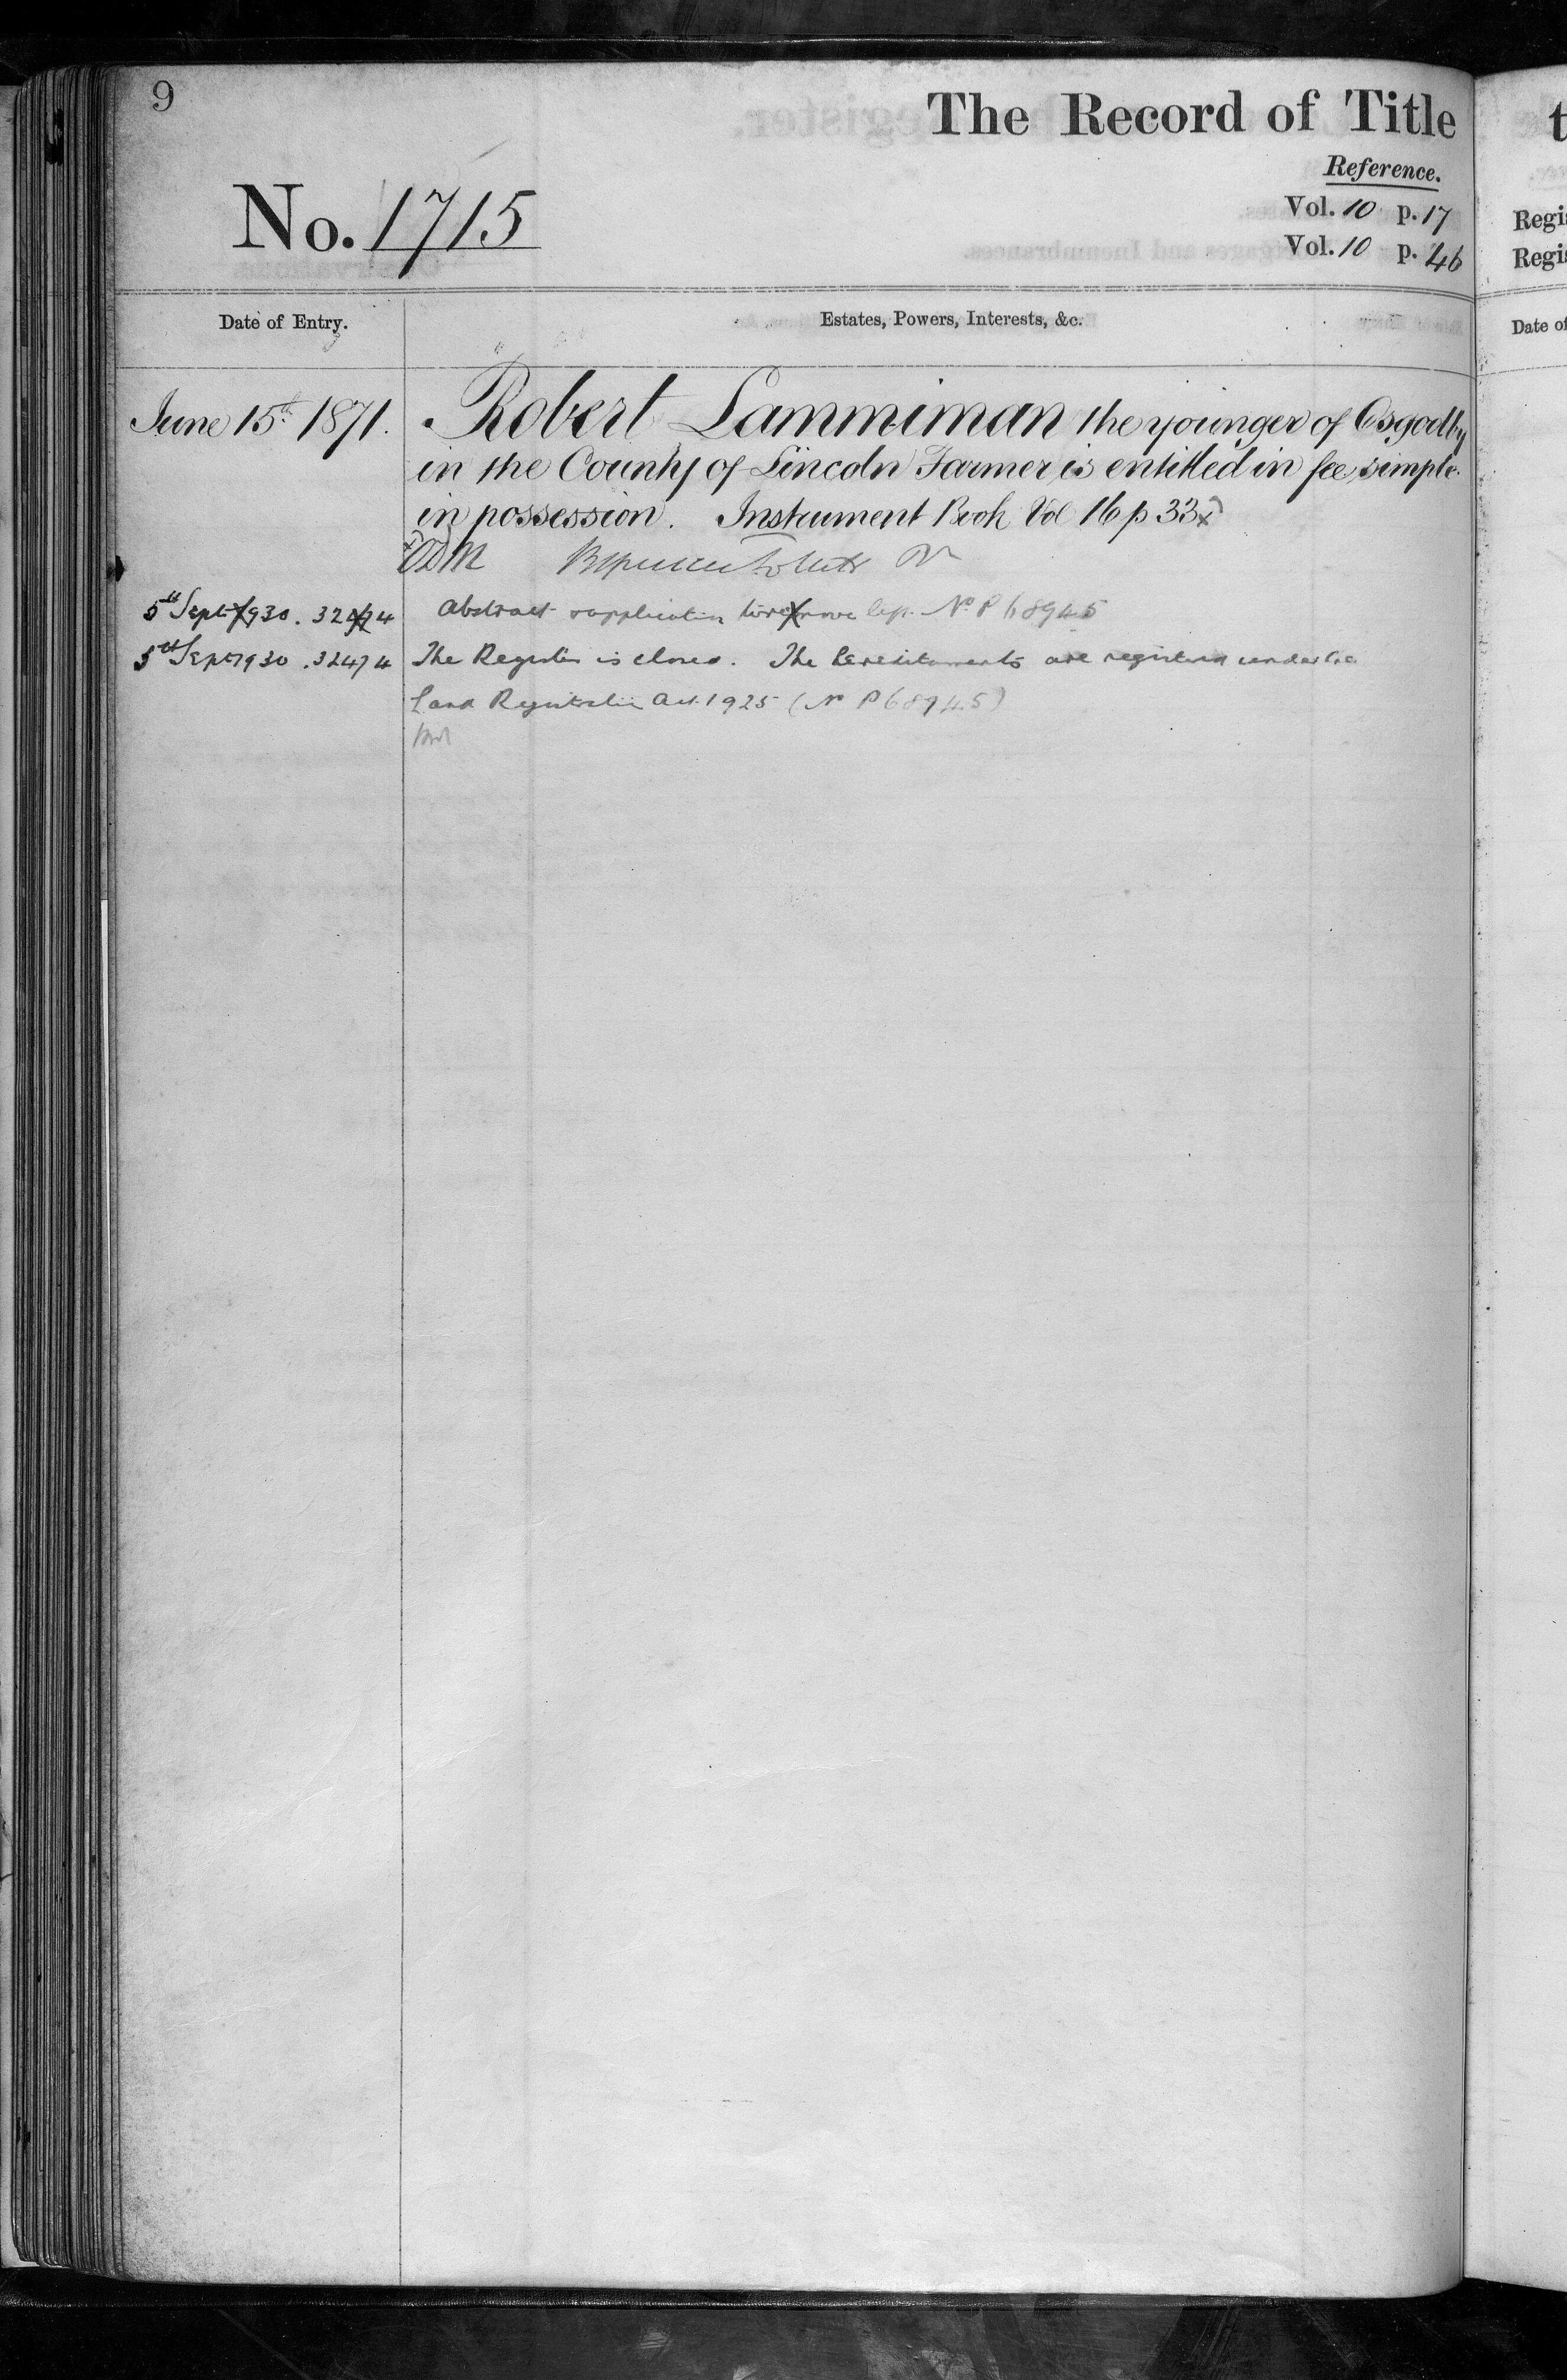 9
The Record of Title
Reference.
No. 1715
Vol. 10 p. 17
Vol. 10 p. 46
Regi
Regi
Date of Entry.
Estates, Powers, Interests, &c.
Date of
June 15th 1871.
Robert Lammiman the younger of Osgodby
in the County of Lincoln Farmer is entitled in fee simple
in possession. Instrument Book Vol 16 p 33
5th Sept 1930. 32474
Abstract application No P 68945
5th Sept 1930. 32474
The Register is closed. The Hereditaments are registered under the
Land Registration Act. 1925 (No P68945)